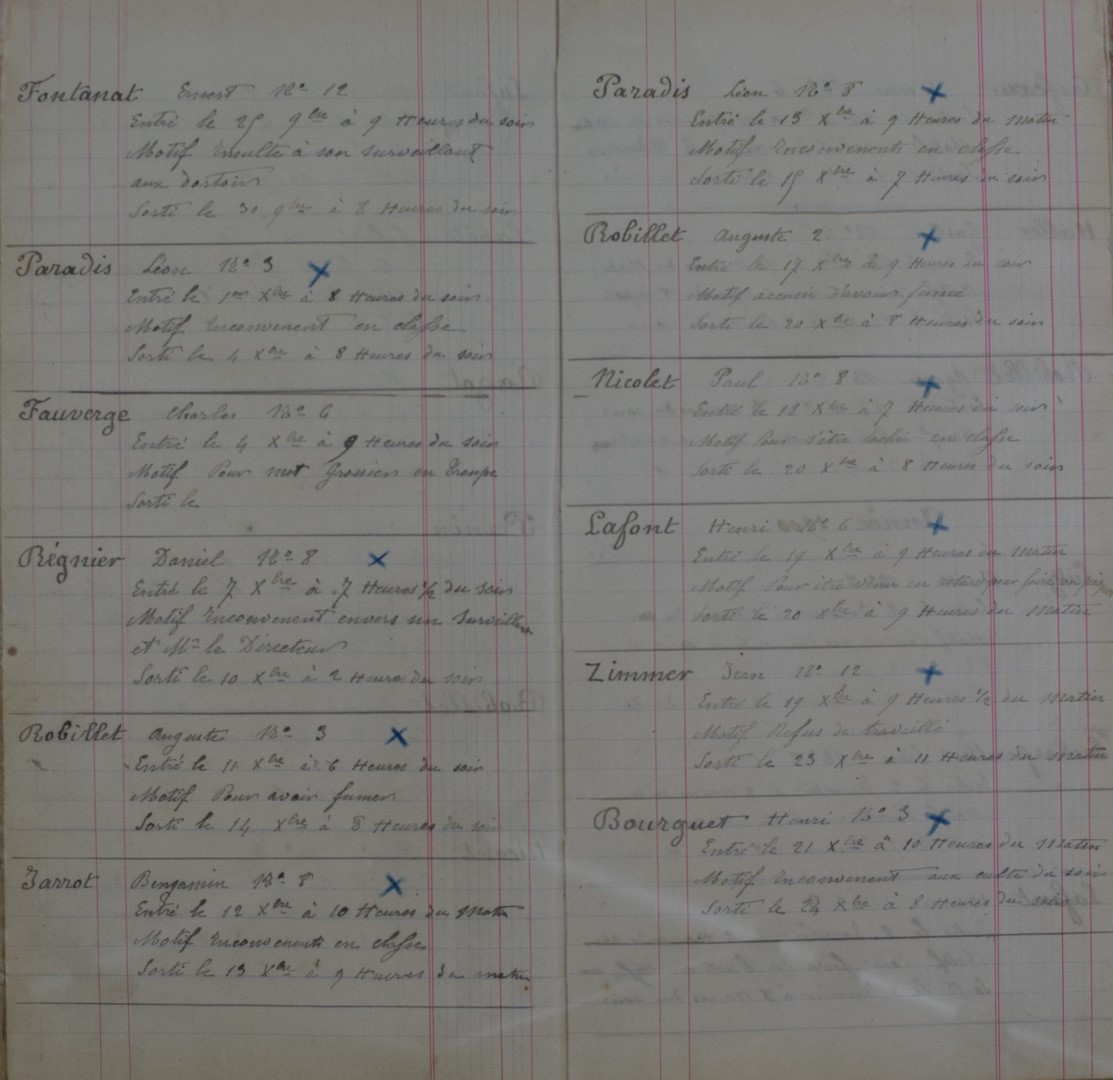 Fontanat Ernest No 12
Entré le 25 9bre à 9 Heures du soir
Motif Insulte à son surveillant
aux dortoirs
Sorti le 30 9bre à 8 Heures du soir
Paradis Léon No 3
Entré le 1er Xbre à 8 Heures du soir
Motif Inconvenent en classe
Sorti le 4 Xbre à 8 Heures du soir
Fauverge Charles No 6
Entré le 4 Xbre à 9 Heures du soir
Motif Pour mot Grossiers en Troupe
Sorti le
Régnier Daniel No 8
Entré le 7 Xbre à 7 Heures 1/2 du soir
Motif Inconvenent envers un Surveillant
et Mr le Directeur
Sorti le 10 Xbre à 2 Heures du soir
Robillet Auguste No 3
Entré le 11 Xbre à 6 Heures du soir
Motif Pour avoir fumer
Sorti le 14 Xbre à 8 Heures du soir
Jarrot Benjamin No 8
Entré le 12 Xbre à 10 Heures du Matin
Motif Inconvenents en classe
Sorti le 13 Xbre à 9 Heures du matin
Paradis Léon No 8
Entré le 13 Xbre à 9 Heures du Matin
Motif Inconvenents en classe
Sorti le 15 Xbre à 7 Heures du soir
Robillet Auguste 2
Entré le 17 Xbre à 9 Heures du soir
Motif accusé d'avoir fumé
Sorti le 20 Xbre à 8 Heures du soir
Nicolet Paul No 8
Entré le 18 Xbre à 7 Heures du soir
Motif Pour s'être en classe
Sorti le 20 Xbre à 8 Heures du soir
Lafont Henri No 6
Entré le 19 Xbre à 9 Heures du Matin
Motif Pour être venu en retard pour faire
Sorti le 20 Xbre à 9 Heures du Matin
Zimmer Jean No 12
Entré le 19 Xbre à 9 Heures 1/2 du Matin
Motif Refus de travaillé
Sorti le 23 Xbre à 11 Heures du Matin
Bourguet Henri No 3
Entré le 21 Xbre à 10 Heures du Matin
Motif Inconvenent aux culte du soir
Sorti le 24 Xbre à 8 Heures du soir